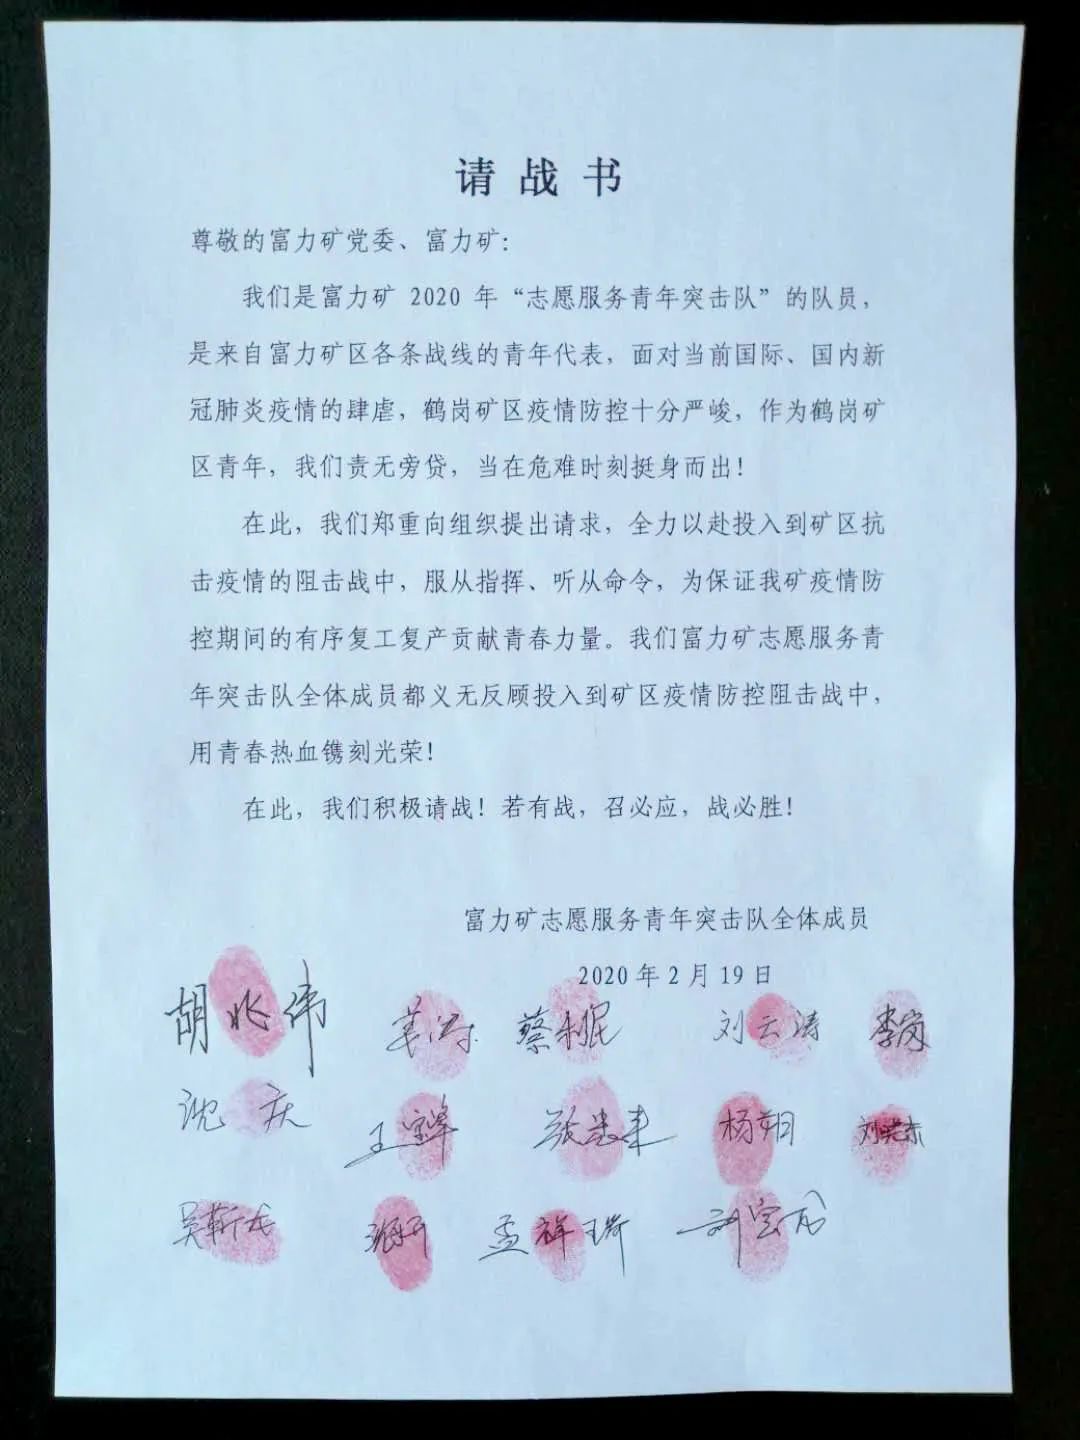 请战书
尊敬的富力矿党委、富力矿：
我们是富力矿 2020 年“志愿服务青年突击队”的队员，
是来自富力矿区各条战线的青年代表，面对当前国际、国内新
冠肺炎疫情的肆虐，鹤岗矿区疫情防控十分严峻，作为鹤岗矿
区青年，我们责无旁贷，当在危难时刻挺身而出！
在此，我们郑重向组织提出请求，全力以赴投入到矿区抗
击疫情的阻击战中，服从指挥、听从命令，为保证我矿疫情防
控期间的有序复工复产贡献青春力量。我们富力矿志愿服务青
年突击队全体成员都义无反顾投入到矿区疫情防控阻击战中，
用青春热血镌刻光荣！
在此，我们积极请战！若有战，召必应，战必胜！
富力矿志愿服务青年突击队全体成员
2020 年 2 月 19 日
胡兆伟 蔡 刘云涛 李岗
沈庆 王宝峰 张忠来 杨朔
吴靳龙 孟祥 刘宝